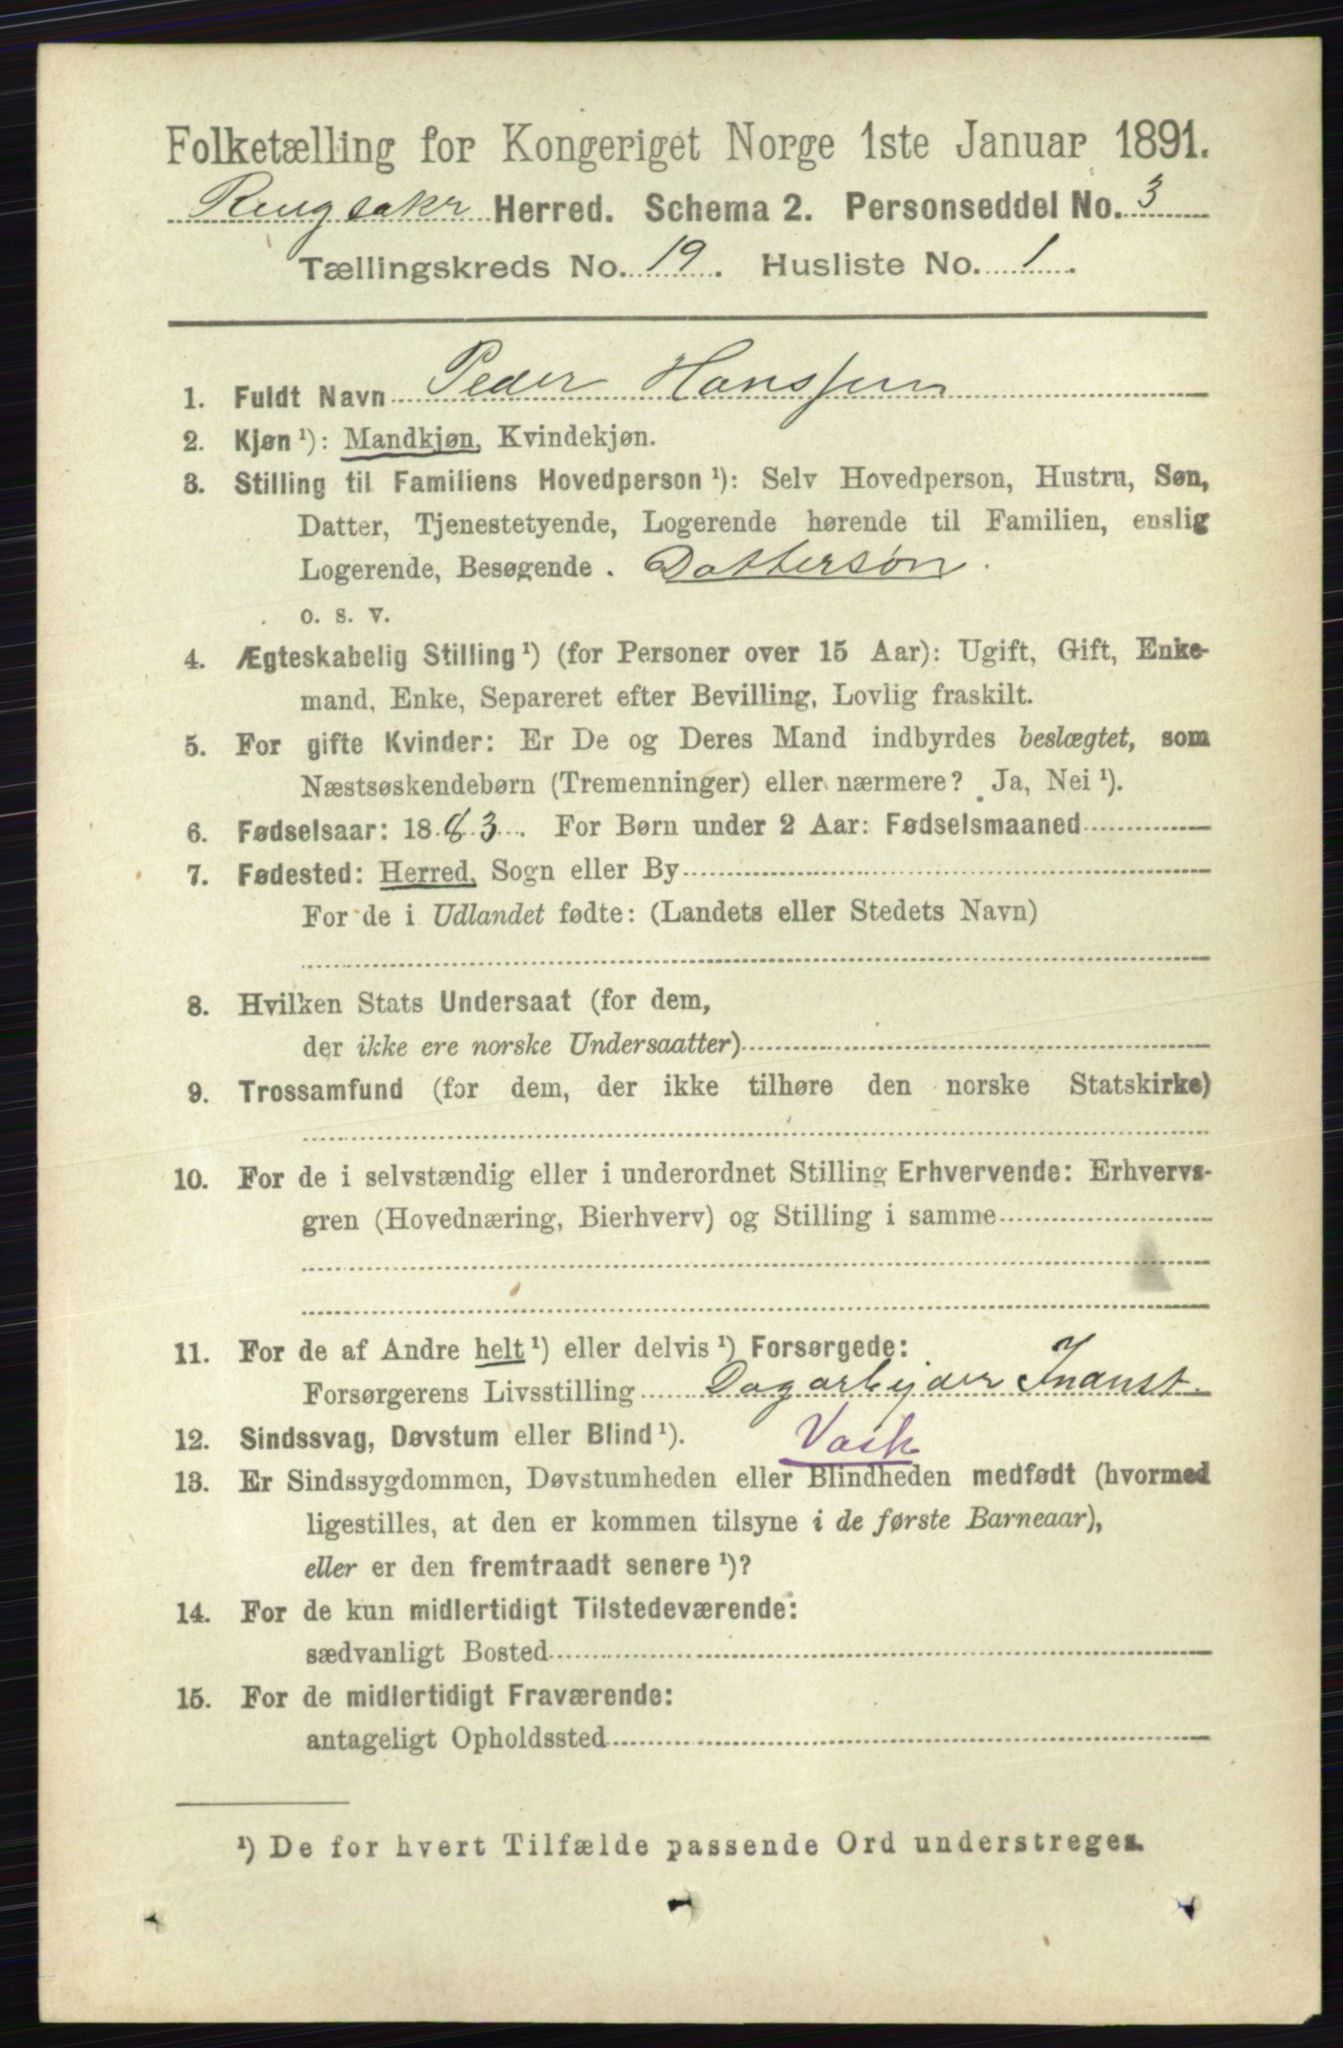 Folketælling for Kongeriget Norge 1ste Januar 1891.
Ringsaker Herred. Schema 2. Personseddel No. 3
Tællingskreds No. 19. Husliste No. 1.
1. Fuldt Navn Peder Hanssen
2. Kjøn ¹): Mandkjøn, Kvindekjøn.
3. Stilling til Familiens Hovedperson ¹): Selv Hovedperson, Hustru, Søn,
Datter, Tjenestetyende, Logerende hørende til Familien, enslig
Logerende, Besøgende. Dattersøn.
o. s. v.
4. Ægteskabelig Stilling ¹) (for Personer over 15 Aar): Ugift, Gift, Enke-
mand, Enke, Separeret efter Bevilling, Lovlig fraskilt.
5. For gifte Kvinder: Er De og Deres Mand indbyrdes beslægtet, som
Næstsøskendebørn (Tremenninger) eller nærmere? Ja, Nei ¹).
6. Fødselsaar: 1883. For Børn under 2 Aar: Fødselsmaaned
7. Fødested: Herred, Sogn eller By
For de i Udlandet fødte: (Landets eller Stedets Navn)
8. Hvilken Stats Undersaat (for dem,
der ikke ere norske Undersaatter)
9. Trossamfund (for dem, der ikke tilhøre den norske Statskirke)
10. For de i selvstændig eller i underordnet Stilling Erhvervende: Erhvervs-
gren (Hovednæring, Bierhverv) og Stilling i samme
11. For de af Andre helt ¹) eller delvis ¹) Forsørgede:
Forsørgerens Livsstilling Dagarbejder Inderst.
12. Sindssvag, Døvstum eller Blind ¹). Vask
13. Er Sindssygdommen, Døvstumheden eller Blindheden medfødt (hvormed
ligestilles, at den er kommen tilsyne i de første Barneaar),
eller er den fremtraadt senere ¹)?
14. For de kun midlertidigt Tilstedeværende:
sædvanligt Bosted
15. For de midlertidigt Fraværende:
antageligt Opholdssted
¹) De for hvert Tilfælde passende Ord understreges.